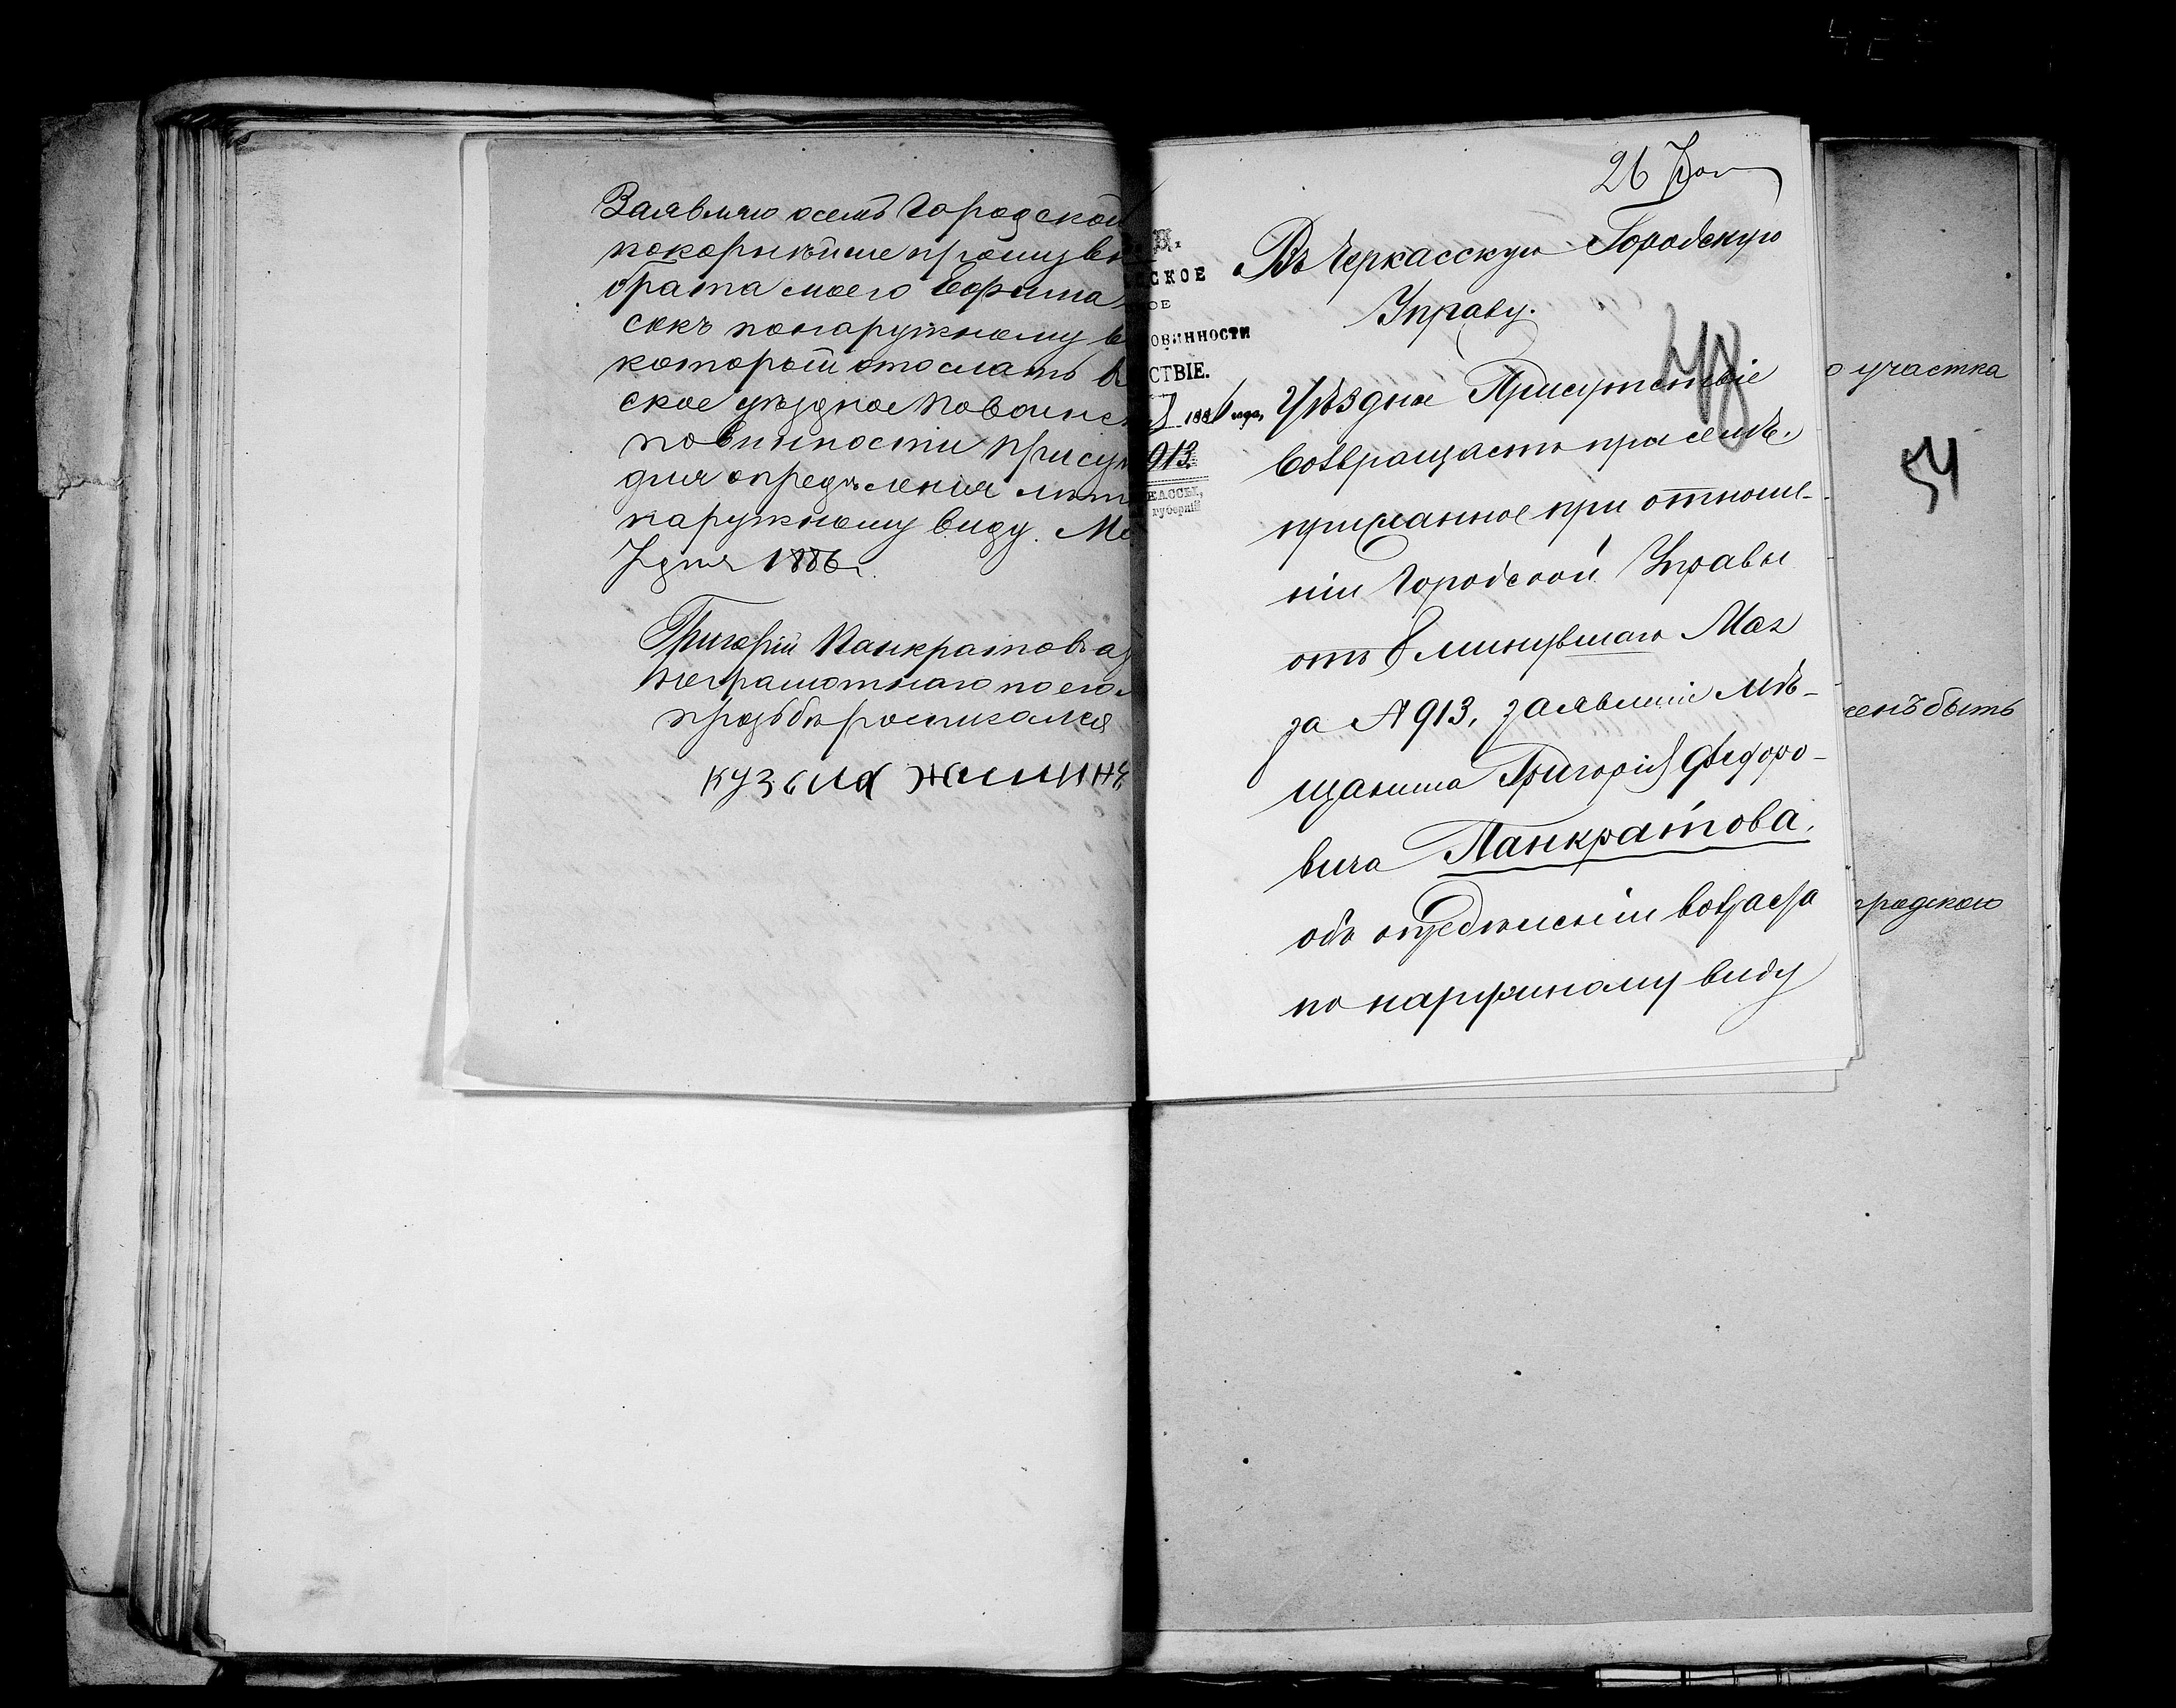 Заявляю осемъ Городской
покорнѣйше прошу вы
брата моего Ефима
сокъ понаружному в
который отослать в
ское уѣздное по воинс
повинности присут
для опредѣленія лѣт
наружному виду. Ма
7 дня 1886 г.
Григорій Панкратовъ а
неграмотнаго по его
прозьбѣ росписался
кузьма жилин
СКОЕ
ОЕ
ОВИННОСТИ
СТВІЕ.
1886 года,
913.
КАССЫ,
губерніи
26
Въ Черкасскую Городскую
Управу.
48
Уѣздное Присутствіе
возвращаетъ при семъ
присланное при отноше-
ніи Городской Управы
отъ 8 минувшаго Мая
за № 913, заявленіе Мѣ-
щанина Григорія Федоро-
вича Панкратова,
объ опредѣленіи возраста
по наружному виду
о участка
54
женъ быть
городскою